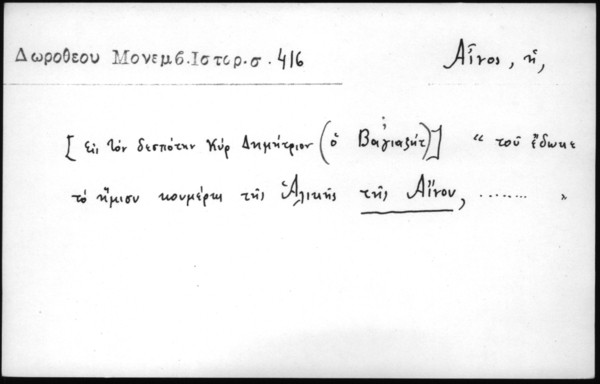 Δωροθεου Μονεμβ.Ιστορ.σ. 416
Αἶνος, ἡ,
[ εἰς τὸν δεσπότην κύρ Δημήτριον (ὁ Βαγιαζήτ)] “ τοῦ ἔδωκε
τὸ ἥμισυ κουμέρκι τῆς Ἁλικῆς τῆς Αἴνου, ........ ”